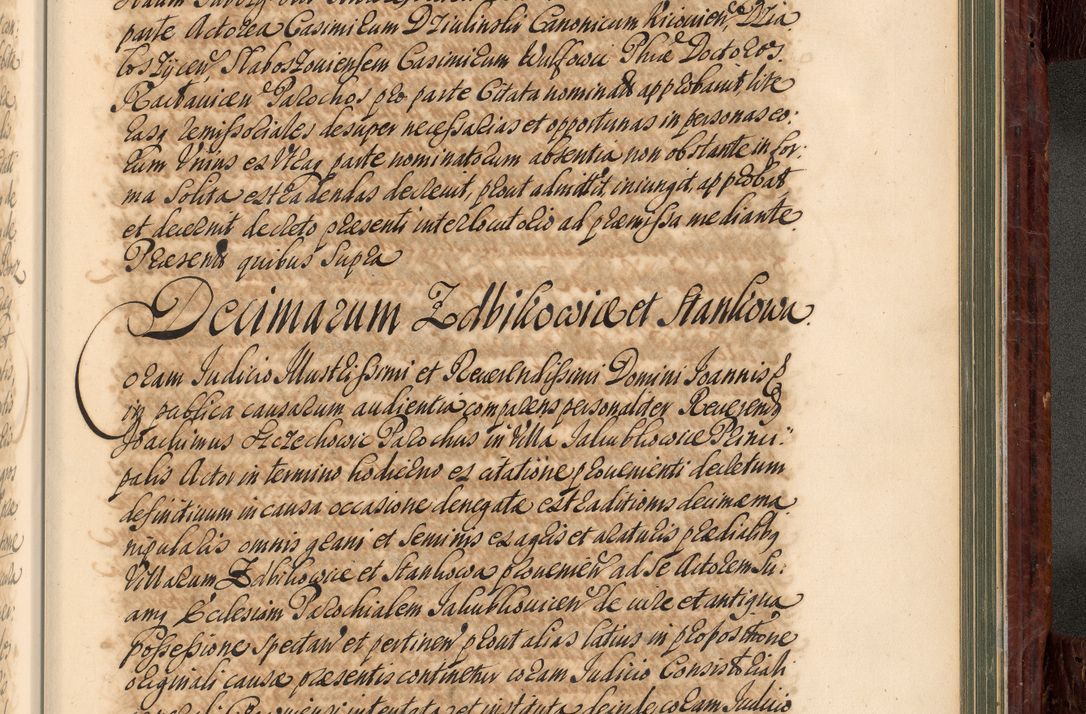 parte Actorea Casimirum Dzialinski Canonicum Kiiovien, Dzia
loszycen, Slaboszoviensem Casimirum Wulfowic Phiae Doctores
Raclavicen Parochos pro parte Citata nominat approbavit lite
rasq remissoriales desuper necessarias et opportunas in personas eo:
rum Unius ex Utraq parte nominatorum absentia non obstante in for:
ma Solita extradendas decrevit, prout admittit iniungit, approbat
et decernit decreto presenti interlocutorio ad praemissa mediante.
Presentt quibus Supra
Decimarum Zdbikowice et Stankowa.
Coram Judicio Illustrissimi et Reverendissimi Domini Joannis
in publica causarum audientia comparens personaliter Reverend
Joachimus Szczechowic Parochus in Villa Jakubkowice Princi
palis Actor in termino hodierno ex citatione provenienti decretum
definitivum in causa occasione denegatae extraditionis decimae ma
nipularis omnis grani et seminis ex agris et araturis praedialibq
Villarum Zdbikowice et Stankowa provenien ad se Actorem Su:
amq Ecclesiam Parochialem Jakubkovicen de iure et antiqua
possessione spectan et pertinen prout alias latius in propositione
originali causae praesentis continetur coram Judicio Consistoriali
intentata et instituta deinde coram Judicio